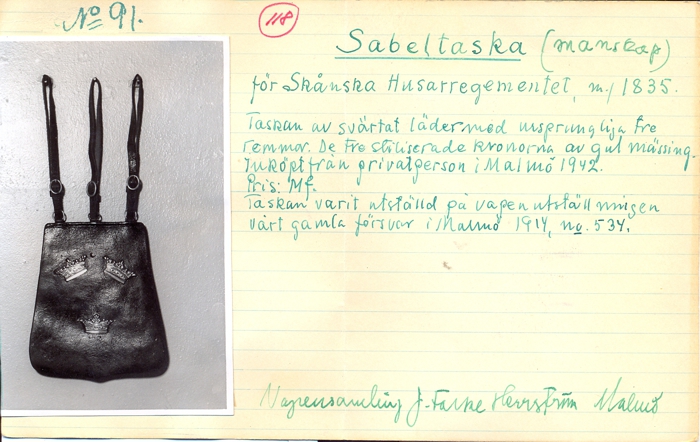 No 91.
118
Sabeltaska (manskap)
för Skånska Husarregementet, m/1835.
Taskan av svärtat läder med ursprungliga tre
remmar. De tre stiliserade kronorna av gul mässing.
Inköpt från privatperson i Malmö 1942.
Pris: Mf.
Taskan varit utställd på vapenutställningen
vårt gamla försvar i Malmö 1914, no. 534.
Vapensamling J- Herrström Malmö